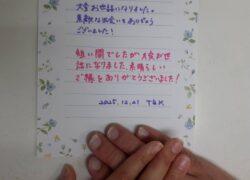 大変お世話になりました。
素敵な出会いをありがとう
ございました!
短い間でしたが大変お世
話になりました。素晴らしい
ご縁をありがとうございました!
2025.12.01